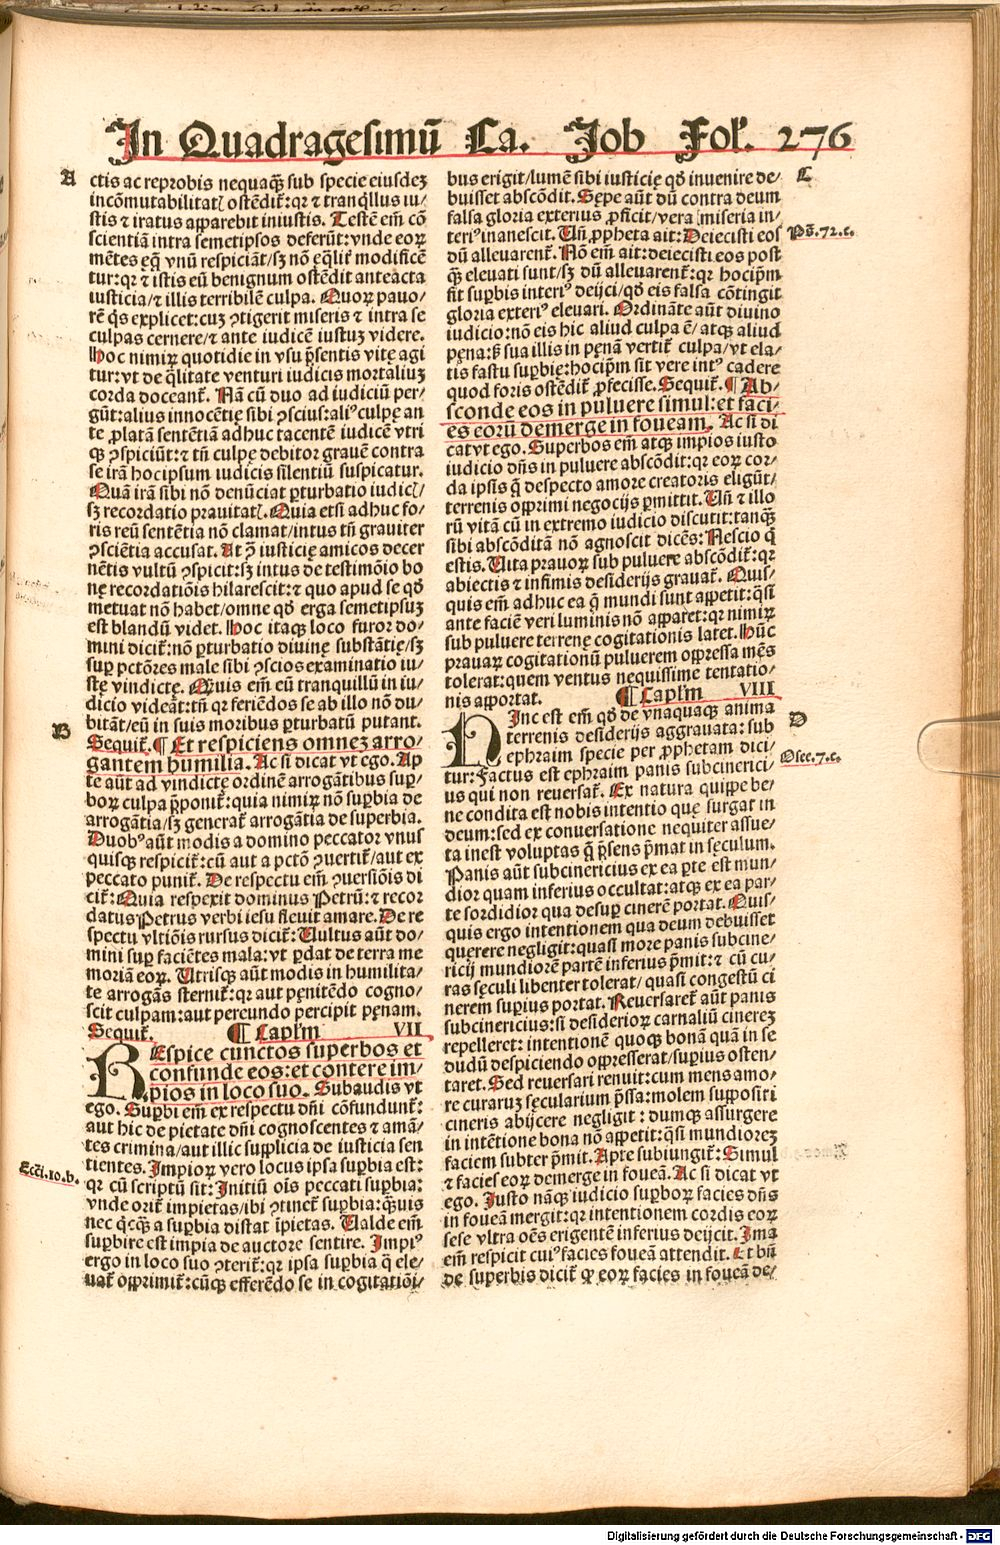 In Quadragesimū Ca. Job Fol. 276
A
ctis ac reprobis nequaqȝ sub specie eiusdeȝ
incōmutabilitatꝭ ostēdit᷑: qꝛ ⁊ tranq̇llus iu/
stis ⁊ iratus apparebit iniustis. Testē em̄ cō
scientiā intra semetipsos deferūt: vnde eoꝝ
mētes eq̄ vnū respiciāt/ sȝ nō eq̄lit᷑ modificē
tur: qꝛ ⁊ istis eū benignum ostēdit anteacta
iusticia/ ⁊ illis terribilē culpa. Quoꝝ pauo/
rē q̇s explicet: cuȝ ꝯtigerit miseris ⁊ intra se
culpas cernere/ ⁊ ante iudicē iustuȝ videre.
Hoc nimiꝝ quotidie in vsu p̄sentis vitę agi
tur: vt de q̄litate venturi iudicis mortaliuȝ
corda doceant᷑. Nā cū duo ad iudiciū per/
gūt: alius innocētię sibi ꝯscius: aliꝰ culpę an
te ꝓlatā sentētiā adhuc tacentē iudicē vtri
qȝ ꝯspiciūt: ⁊ tn̄ culpę debitor grauē contra
se irā hoc ipsum iudicis silentiū suspicatur.
Quā irā sibi nō denūciat ꝑturbatio iudicꝭ/
sȝ recordatio prauitatꝭ. Quia etsi adhuc fo/
ris reū sentētia nō clamat/ intus tn̄ grauiter
ꝯsciētia accusat. At ꝯ̄ iusticię amicos decer
nētis vultū ꝯspicit: sȝ intus de testimōio bo
nę recordatiōis hilarescit: ⁊ quo apud se qḋ
metuat nō habet/ omne qḋ erga semetipsuȝ
est blandū videt. Hoc itaqȝ loco furor do/
mini dicit᷑: nō ꝑturbatio diuinę substātię/ sȝ
suꝑ pctōres male sibi ꝯscios examinatio iu/
stę vindictę. Quis em̄ eū tranquillū in iu/
dicio videāt: tn̄ qꝛ feriēdos se ab illo nō du/
bitāt/ eū in suis moribus ꝑturbatū putant.
B
Sequit᷑. ¶ Et respiciens omneȝ arro/
gantem humilia. Ac si dicat vt ego. Ap
te aūt ad vindictę ordinē arrogātibus suꝑ/
boꝝ culpa p̄ponit᷑: quia nimiꝝ nō suꝑbia de
arrogātia/ sȝ generat᷑ arrogātia de superbia.
Duobꝰ aūt modis a domino peccator vnus
quisqȝ respicit᷑: cū aut a pctō ꝯuertit᷑/ aut ex
peccato punit᷑. De respectu em̄ ꝯuersiōis di
cit᷑: Quia respexit dominus Petrū: ⁊ recor
datus Petrus verbi iesu fleuit amare. De re
spectu vltiōis rursus dicit᷑: Uultus aūt do/
mini suꝑ faciētes mala: vt ꝑdat de terra me
moriā eoꝝ. Utrisqȝ aūt modis in humilita/
te arrogās sternit᷑: qꝛ aut pęnitēdo cogno/
scit culpam: aut pereundo percipit pęnam.
Sequit᷑. ¶ Caplm VII
REspice cunctos superbos et
confunde eos: et contere im/
pios in loco suo. Subaudis vt
ego. Suꝑbi em̄ ex respectu dn̄i cōfundunt᷑:
aut hic de pietate dn̄i cognoscentes ⁊ amā/
tes crimina/ aut illic supplicia de iusticia sen
tientes. Impioꝝ vero locus ipsa suꝑbia est:
Eccī. 10. b.
qꝛ cū scriptū sit: Initiū oīs peccati suꝑbia:
vnde orit᷑ impietas/ ibi ꝯtinet᷑ suꝑbia: q̄uis
nec q̇cq̄ȝ a suꝑbia distat īpietas. Ualde em̄
suꝑbire est impia de auctore sentire. Impiꝰ
ergo in loco suo ꝯterit᷑: qꝛ ipsa suꝑbia q̄ ele/
uat᷑ opprimit᷑: cūqȝ efferēdo se in cogitatiōi/
C
bus erigit/ lumē sibi iusticię qḋ inuenire de/
buisset abscōdit. Sępe aūt dū contra deum
falsa gloria exterius ꝓficit/ vera miseria in/
teriꝰ inanescit. Un̄ ꝓpheta ait: Deiecisti eos
Ps̄. 72. c.
dū alleuarent᷑. Nō em̄ ait: deiecisti eos post
q̄ȝ eleuati sunt/ sȝ dū alleuarent᷑: qꝛ hocip̄m
fit suꝑbis interiꝰ deijci/ qḋ eis falsa cōtingit
gloria exteriꝰ eleuari. Ordināte aūt diuino
iudicio: nō eis hic aliud culpa ē/ atqȝ aliud
pęna: ß sua illis in pęnā vertit᷑ culpa/ vt ela/
tis fastu suꝑbię: hocip̄m sit vere intꝰ cadere
quod foris ostēdit᷑ ꝓfecisse. Sequit᷑. ¶ Ab/
sconde eos in puluere simul: et faci/
es eorū demerge in foueam. Ac si di
cat vt ego. Superbos em̄ atqȝ impios iusto
iudicio dn̄s in puluere abscōdit: qꝛ eoꝝ cor/
da ipsis q̄ despecto amore creatoris eligūt/
terrenis opprimi negocijs ꝑmittit. Un̄ ⁊ illo
rū vitā cū in extremo iudicio discutit: tanq̄ȝ
sibi abscōditā nō agnoscit dicēs: Nescio q̇
estis. Uita prauoꝝ sub puluere abscōdit᷑: qꝛ
abiectis ⁊ infimis desiderijs grauat᷑. Quis/
quis em̄ adhuc ea q̄ mundi sunt appetit: q̄si
ante faciē veri luminis nō apparet: qꝛ nimiꝝ
sub puluere terrenę cogitationis latet. Hūc
prauaꝝ cogitationū puluerem oppressa mēs
tolerat: quem ventus nequissime tentatio/
nis apportat. ¶ Caplm VIII
D
HInc est em̄ qḋ de vnaquaqȝ anima
terrenis desiderijs aggrauata: sub
ephraim specie per ꝓphetam dici/
Osee. 7. c.
tur: Factus est ephraim panis subcinerici/
us qui non reuersat᷑. Ex natura quippe be/
ne condita est nobis intentio quę surgat in
deum: sed ex conuersatione nequiter assue/
ta inest voluptas q̄ p̄sens p̄mat in sęculum.
Panis aūt subcinericius ex ea ꝑte est mun/
dior quam inferius occultat: atqȝ ex ea par/
te sordidior qua desuꝑ cinerē portat. Quis/
quis ergo intentionem qua deum debuisset
querere negligit: quasi more panis subcine/
ricij mundiorē partē inferius p̄mit: ⁊ cū cu/
ras sęculi libenter tolerat/ quasi congestū ci
nerem suꝑius portat. Reuersaret᷑ aūt panis
subcinericius: si desiderioꝝ carnaliū cinereȝ
repelleret: intentionē quoqȝ bonā quā in se
dudū despiciendo oppresserat/ suꝑius osten/
taret. Sed reuersari renuit: cum mens amo/
re curaruȝ sęcularium p̄ssa: molem suppositi
cineris abijcere negligit: dumqȝ assurgere
in intētione bona nō appetit: q̄si mundioreȝ
faciem subter p̄mit. Apte subiungit᷑: Simul
⁊ facies eoꝝ demerge in foueā. Ac si dicat vt
ego. Justo nāqȝ iudicio suꝑboꝝ facies dn̄s
in foueā mergit: qꝛ intentionem cordis eoꝝ
sese vltra oēs erigentē inferius deijcit. Ima
em̄ respicit cuiꝰ facies foueā attendit. Et bn̄
de superbis dicit᷑ ꝙ eoꝝ facies in foueā de/
Digitalisierung gefördert durch die Deutsche Forschungsgemeinschaft - DFG